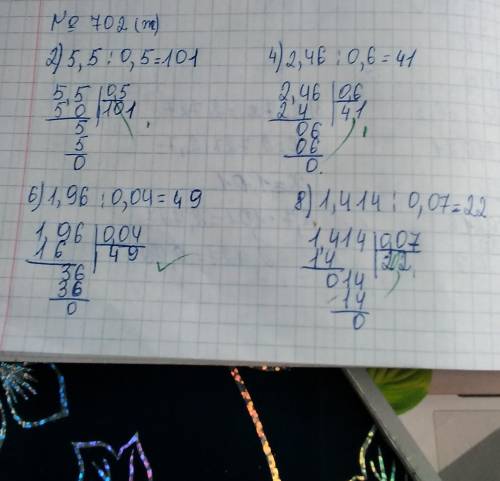 № 702 (т)
2) 5,5 : 0,5 = 101
5,5 | 0,5
5 0 | 101
5
5
0
4) 2,46 : 0,6 = 41
2,46 | 0,6
2 4 | 41
06
06
0
6) 1,96 : 0,04 = 49
1,96 | 0,04
1 6 | 49
36
36
0
8) 1,414 : 0,07 = 22
1,414 | 0,07
1 4 | 202
014
14
0